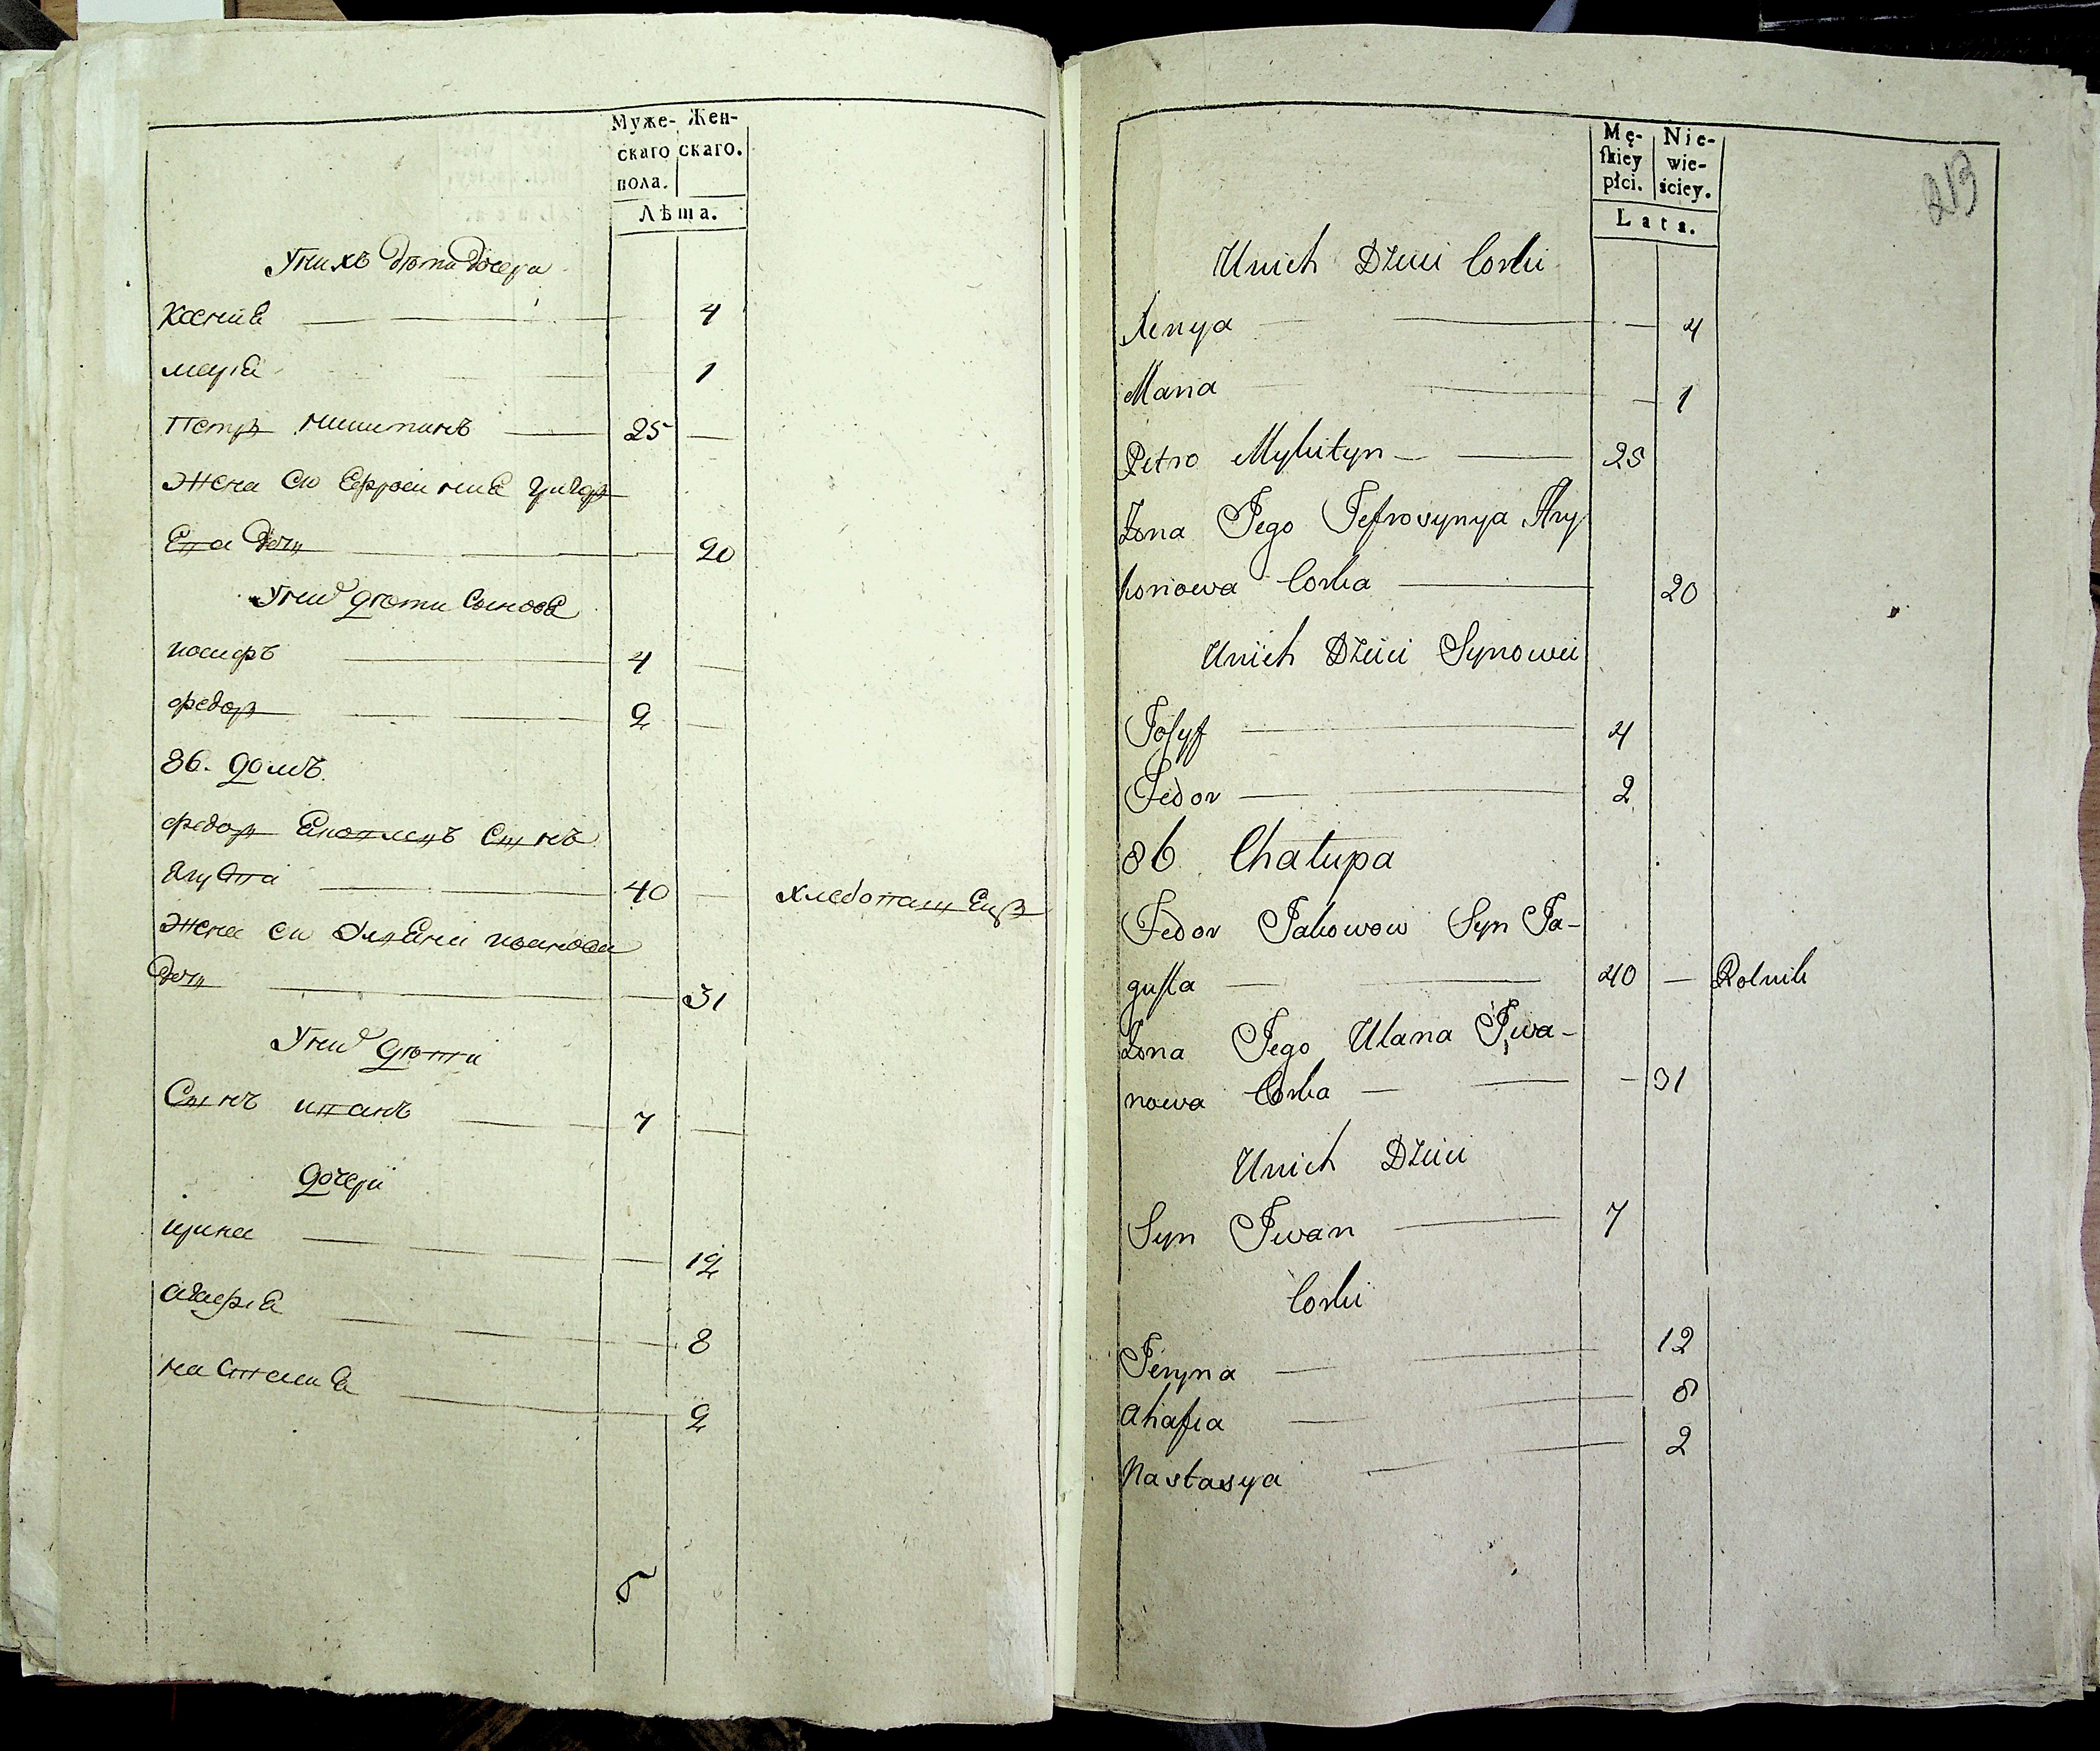 Муже- Жен-
скаго скаго.
пола.
Лѣта.
Унихъ дѣти дочери
Ксения 4
мария 1
Петръ никитинъ 25
жена его Ефросиния григор
Ева дочь 20
Уних дѣти Сыновя
иосифъ 4
федор 2
86. домъ.
федор Яковлевъ Сынъ
Ягуста 40 хлебопашецъ
жена ево Улияна иванова
дочь 31
Уних дѣти
Сынъ иванъ 7
дочери
ирина 12
агафия 8
настасия 2
б
Mę- Nie-
skiey wie-
płci. ściey.
Lata.
213
Unich Dzieci Corki
Xenya 4
Maria 1
Petro Mykityn 25
Żona Jego Jefrosynya Hry
horiowa Corka 20
Unich Dzieci Synowie
Josyf 4
Fedor 2
86 Chałupa
Fedor Jakowow Syn Ja-
gusta 40 — Rolnik
Żona Jego Ulana Iwa-
nowa Corka 31
Unich Dzieci
Syn Iwan 7
Corki
Jeryna 12
Ahafia 8
Nastasya 2